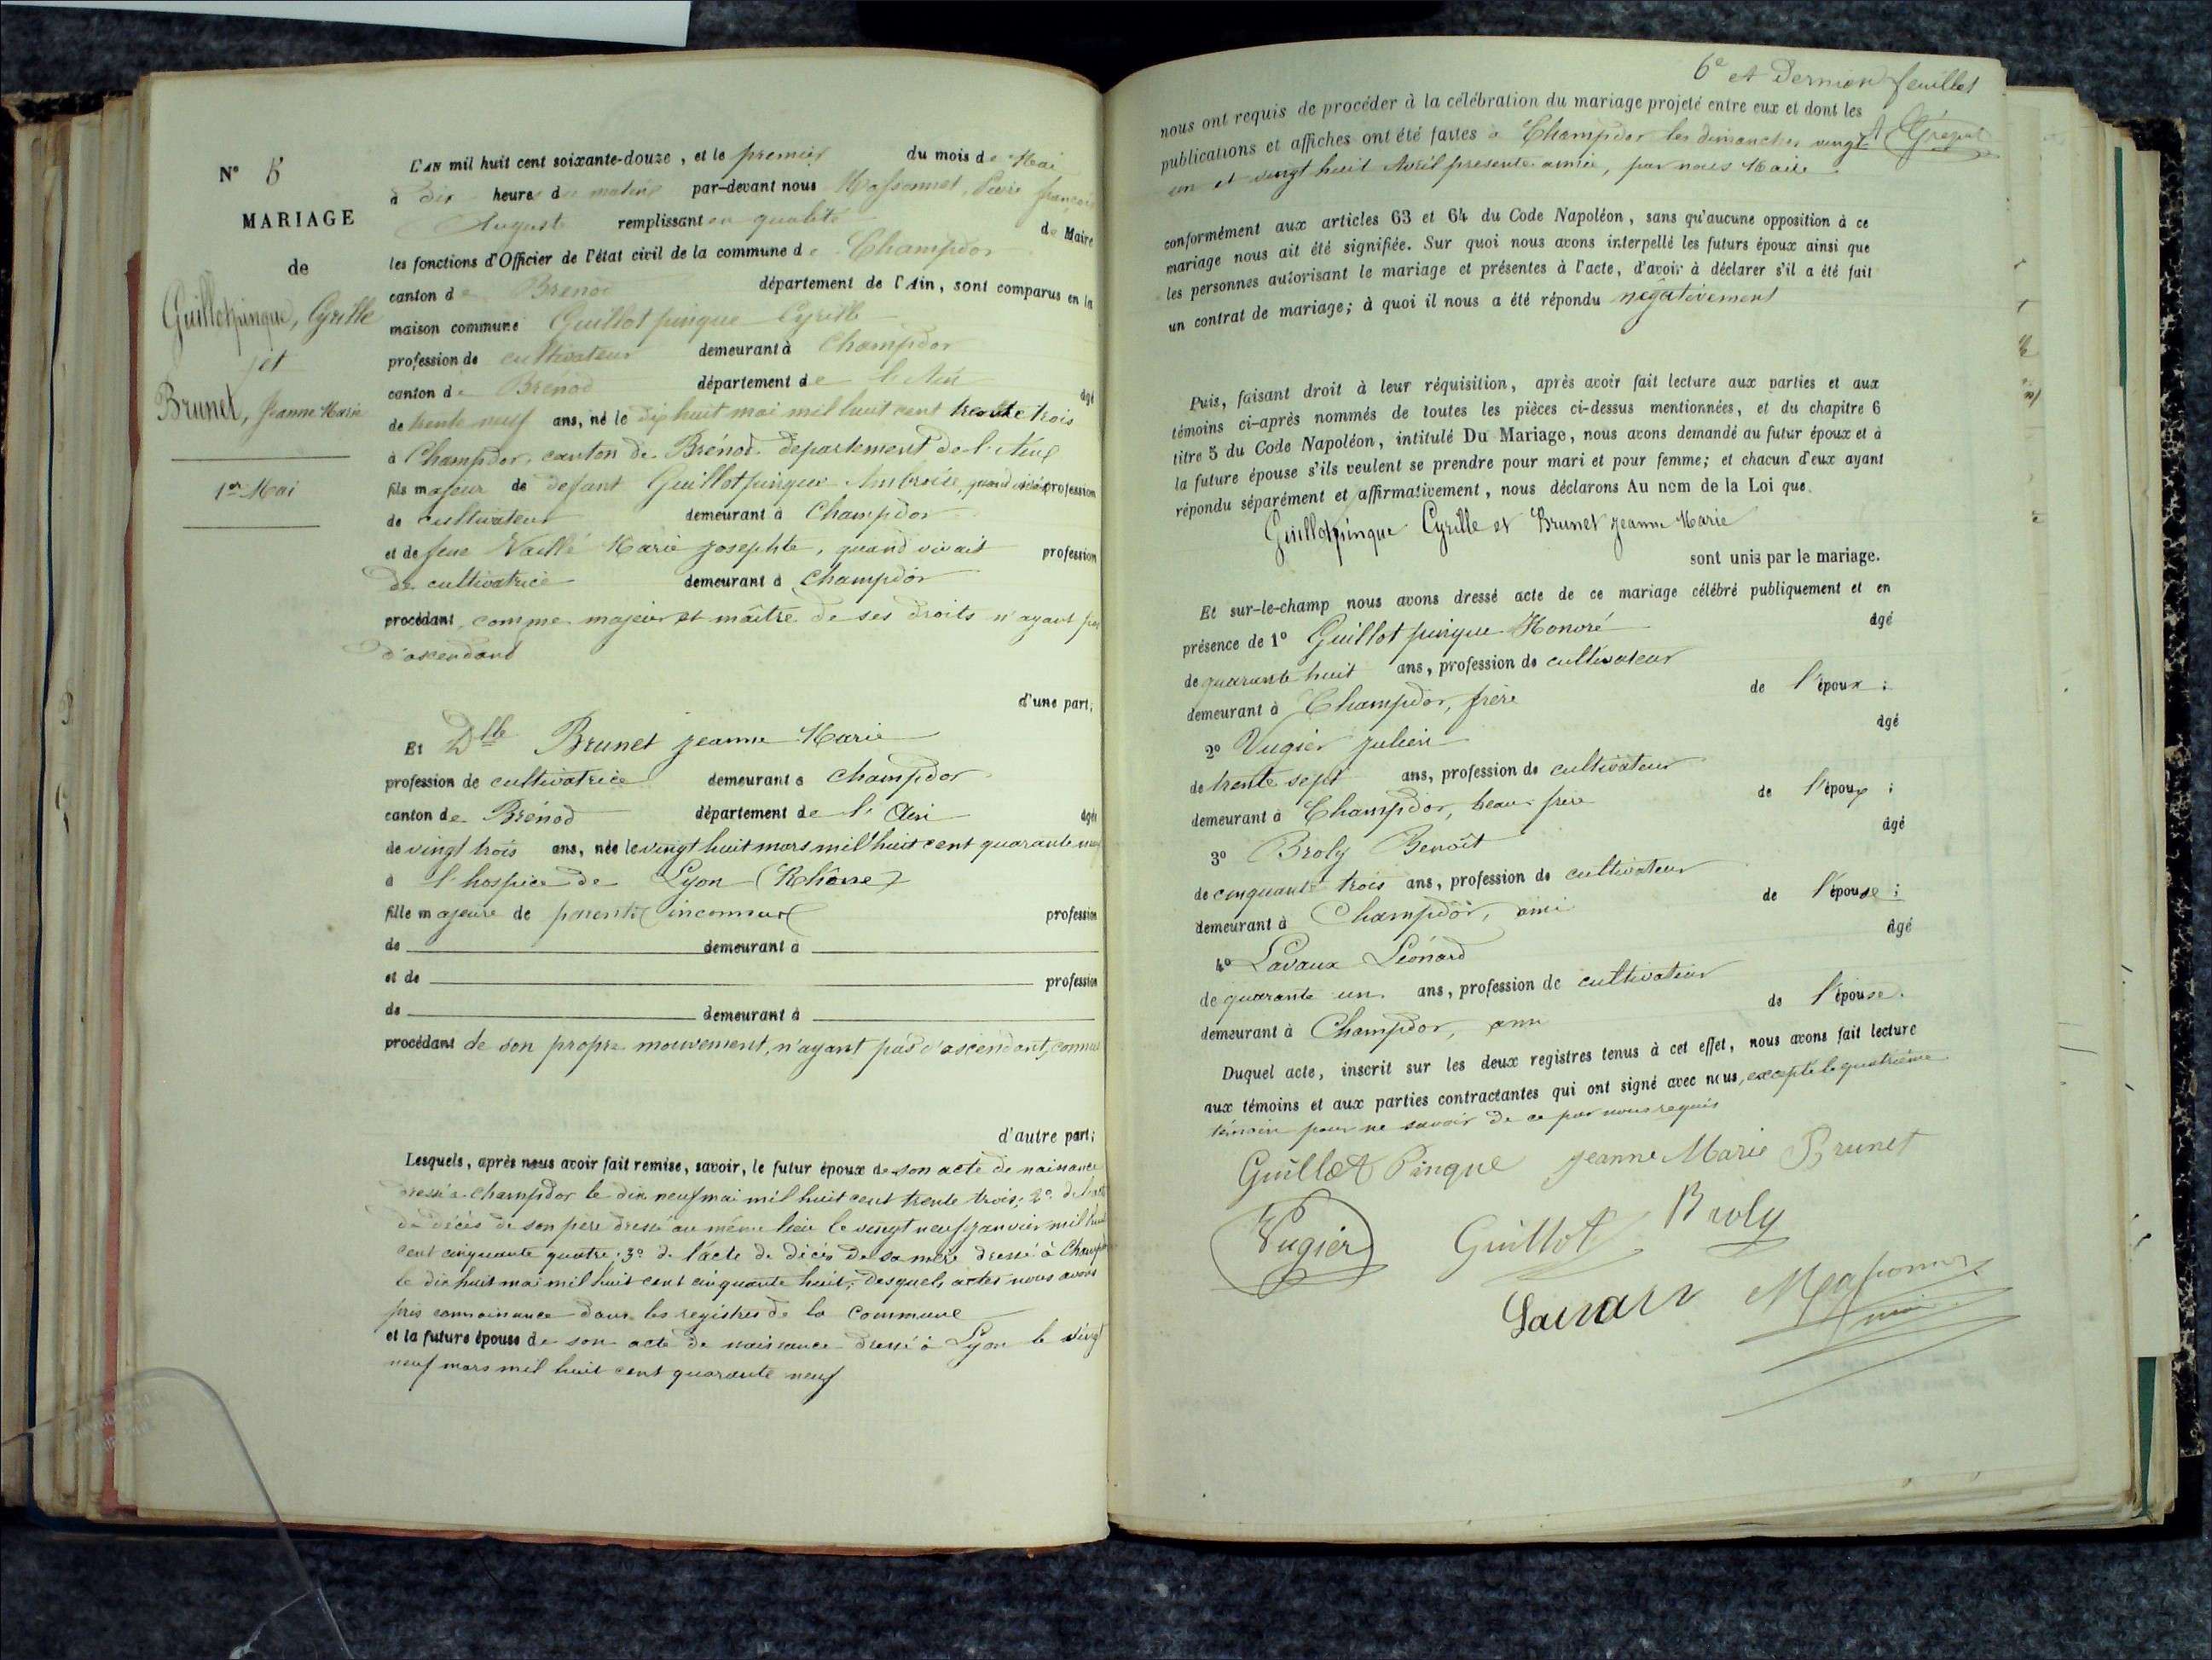 N° 5
MARIAGE
de
Guillotpinque, Cyrille
et
Brunet, Jeanne Marie
1er Mai
L'AN mil huit cent soixante-douze, et le premier du mois de Mai
à dix heures du matin par-devant nous Massonnet, Pierre françois
Auguste remplissant en qualité de Maire
les fonctions d'Officier de l'état civil de la commune de Champdor
canton de Brenod département de l'Ain, sont comparus en la
maison commune Guillot pinque Cyrille
profession de cultivateur demeurant à Champdor
canton de Brénod département de l'Ain âgé
de trente neuf ans, né le dix huit mai mil huit cent trente trois
à Champdor, canton de Brénod département de l'Ain
fils majeur de defunt Guillotpinque Ambroise, quand vivait profession
de cultivateur demeurant à Champdor
et de feue Naillé Marie Josephte, quand vivait profession
de cultivatrice demeurant à Champdor
procédant comme majeur et maître de ses droits n'ayant pas
d'ascendant
d'une part;
Et Dlle Brunet Jeanne Marie
profession de cultivatrice demeurant à Champdor
canton de Brénod département de l'Ain âgée
de vingt trois ans, née le vingt huit mars mil huit cent quarante neuf
à l'hospice de Lyon (Rhône)
fille majeure de parents inconnus profession
de demeurant à
et de profession
de demeurant à
procédant de son propre mouvement, n'ayant pas d'ascendant, connus
d'autre part;
Lesquels, après nous avoir fait remise, savoir, le futur époux de son acte de naissance
dressé à Champdor le dix neuf mai mil huit cent trente trois; 2° de l'acte
de décès de son père dressé au même lieu le vingt neuf janvier mil huit
cent cinquante quatre; 3° de l'acte de décès de sa mère dressé à Champdor
le dix huit mai mil huit cent cinquante huit, desquels actes nous avons
pris connaissance dans les registres de la Commune
et la future épouse de son acte de naissance dressé à Lyon le vingt
neuf mars mil huit cent quarante neuf
6e et Dernier feuillet
nous ont requis de procéder à la célébration du mariage projeté entre eux et dont les
publications et affiches ont été faites à Champdor les dimanches vingt
un et vingt huit Avril présente année, par nous Maire
conformément aux articles 63 et 64 du Code Napoléon, sans qu'aucune opposition à ce
mariage nous ait été signifiée. Sur quoi nous avons interpellé les futurs époux ainsi que
les personnes autorisant le mariage et présentes à l'acte, d'avoir à déclarer s'il a été fait
un contrat de mariage; à quoi il nous a été répondu négativement
Puis, faisant droit à leur réquisition, après avoir fait lecture aux parties et aux
témoins ci-après nommés de toutes les pièces ci-dessus mentionnées, et du chapitre 6
titre 5 du Code Napoléon, intitulé Du Mariage, nous avons demandé au futur époux et à
la future épouse s'ils veulent se prendre pour mari et pour femme; et chacun d'eux ayant
répondu séparément et affirmativement, nous déclarons Au nom de la Loi que
Guillotpinque Cyrille et Brunet Jeanne Marie
sont unis par le mariage.
Et sur-le-champ nous avons dressé acte de ce mariage célébré publiquement et en
présence de 1° Guillot pinque Honoré âgé
de quarante huit ans, profession de cultivateur
demeurant à Champdor, frère de l'époux;
2° Vugier Julien âgé
de trente sept ans, profession de cultivateur
demeurant à Champdor, beau frère de l'époux;
3° Broly Benoît âgé
de cinquante trois ans, profession de cultivateur
demeurant à Champdor, ami de l'épouse;
4° Lavaux Léonard âgé
de quarante un ans, profession de cultivateur
demeurant à Champdor, ami de l'épouse.
Duquel acte, inscrit sur les deux registres tenus à cet effet, nous avons fait lecture
aux témoins et aux parties contractantes qui ont signé avec nous, excepté le quatrième
témoin pour ne savoir de ce par nous requis
Guillot Pinque Jeanne Marie Brunet
Vugier Guillot Broly